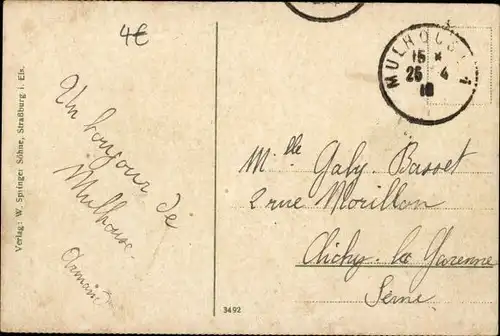 4€
MULHOUSE 1
15 *
26 4
Verlag: W. Springer Söhne, Straßburg i. Els.
Un bonjour de
Mulhouse.
3492
Mlle Gaby Basset
2 rue Morillon
Clichy la Garenne
Seine